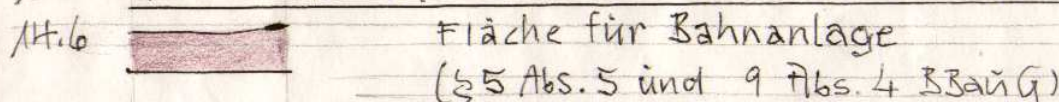 14.6 Fläche für Bahnanlage
(§5 Abs. 5 und 9 Abs. 4 BBauG)